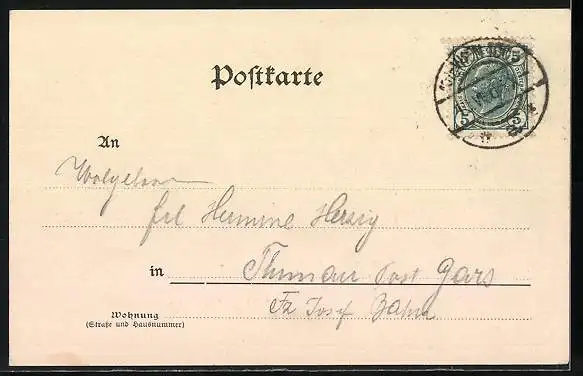 Postkarte
5 5
5 5
An
Wolgeboren
Frl Hermine Herzig
in Thunau Post Gars
Fz Josef Bahn
Wohnung
(Straße und Hausnummer)